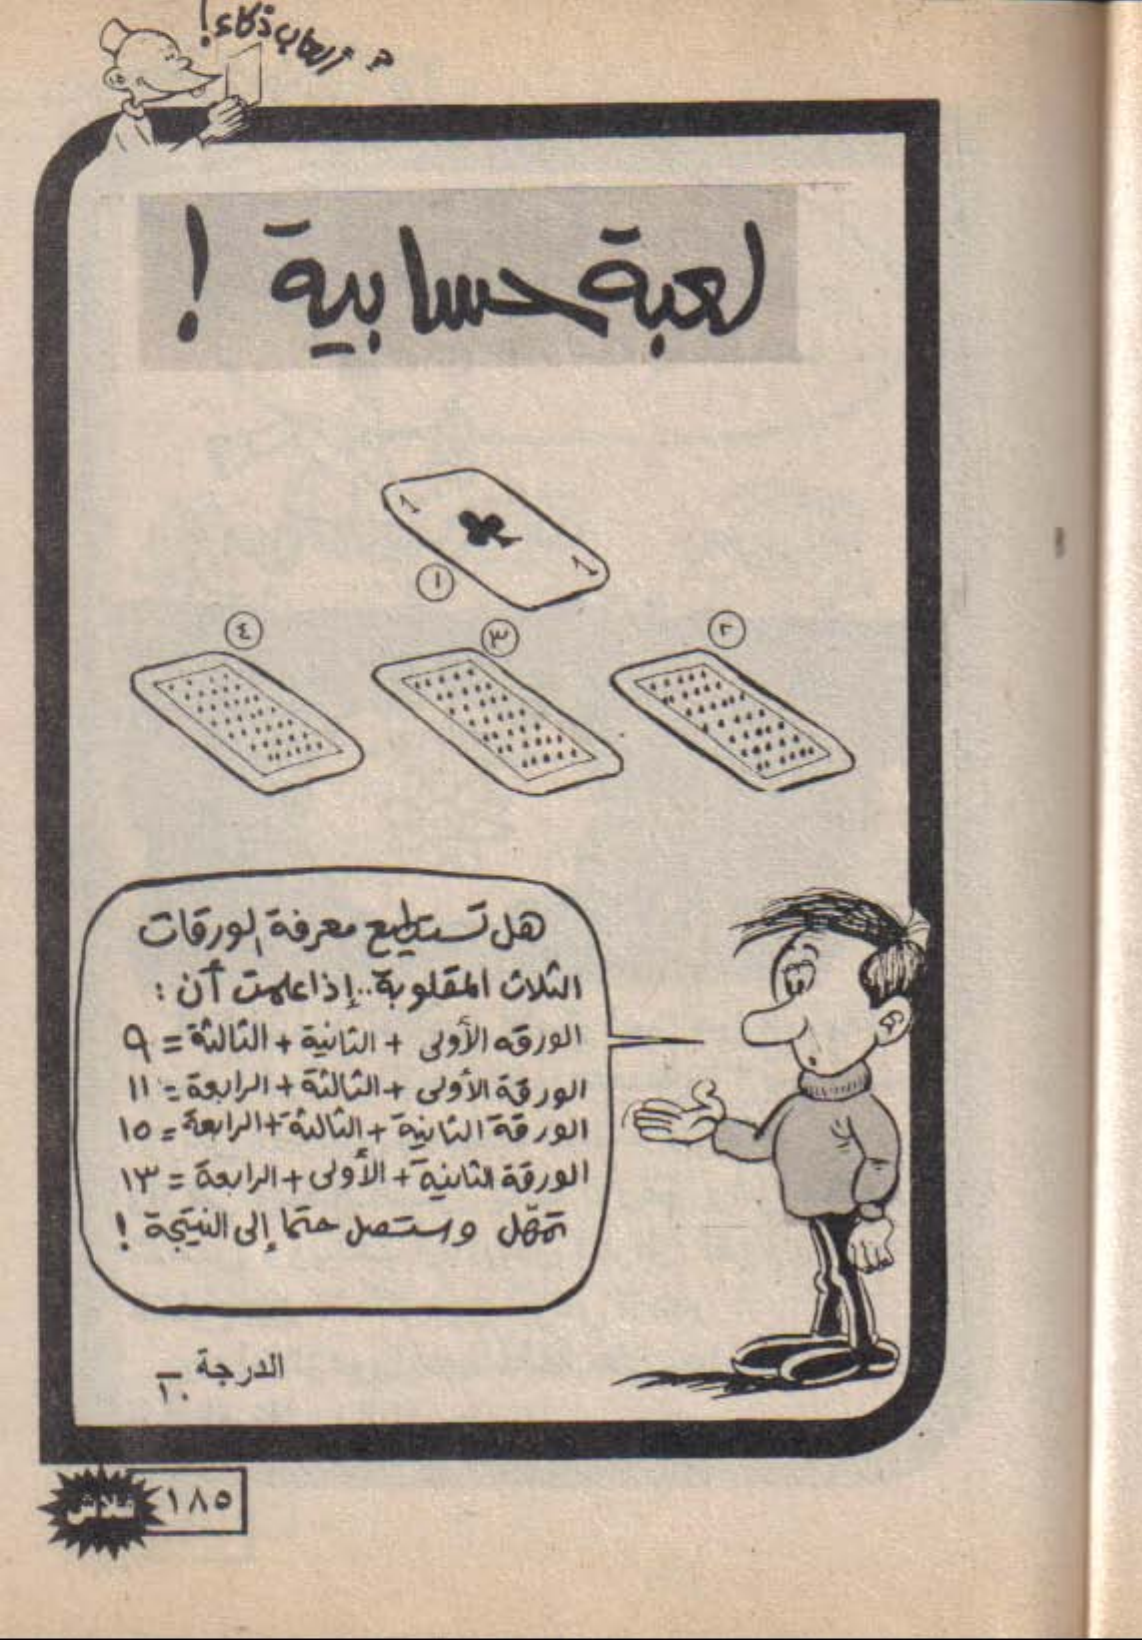 ألعاب ذكاء!
لعبة حسابية !
1
1
١
٤ ٣ ٢
هل تستطيع معرفة الورقات
الثلاث المقلوبة..إذا علمت أن :
الورقه الأولى + الثانية + الثالثة = ٩
الورقة الأولى + الثالثة + الرابعة = ١١
الورقة الثانية + الثالثة + الرابعة = ١٥
الورقة الثانية + الأولى + الرابعة = ١٣
تمهّل وستصل حتما إلى النتيجة !
الدرجة ١٠
فلاش ١٨٥